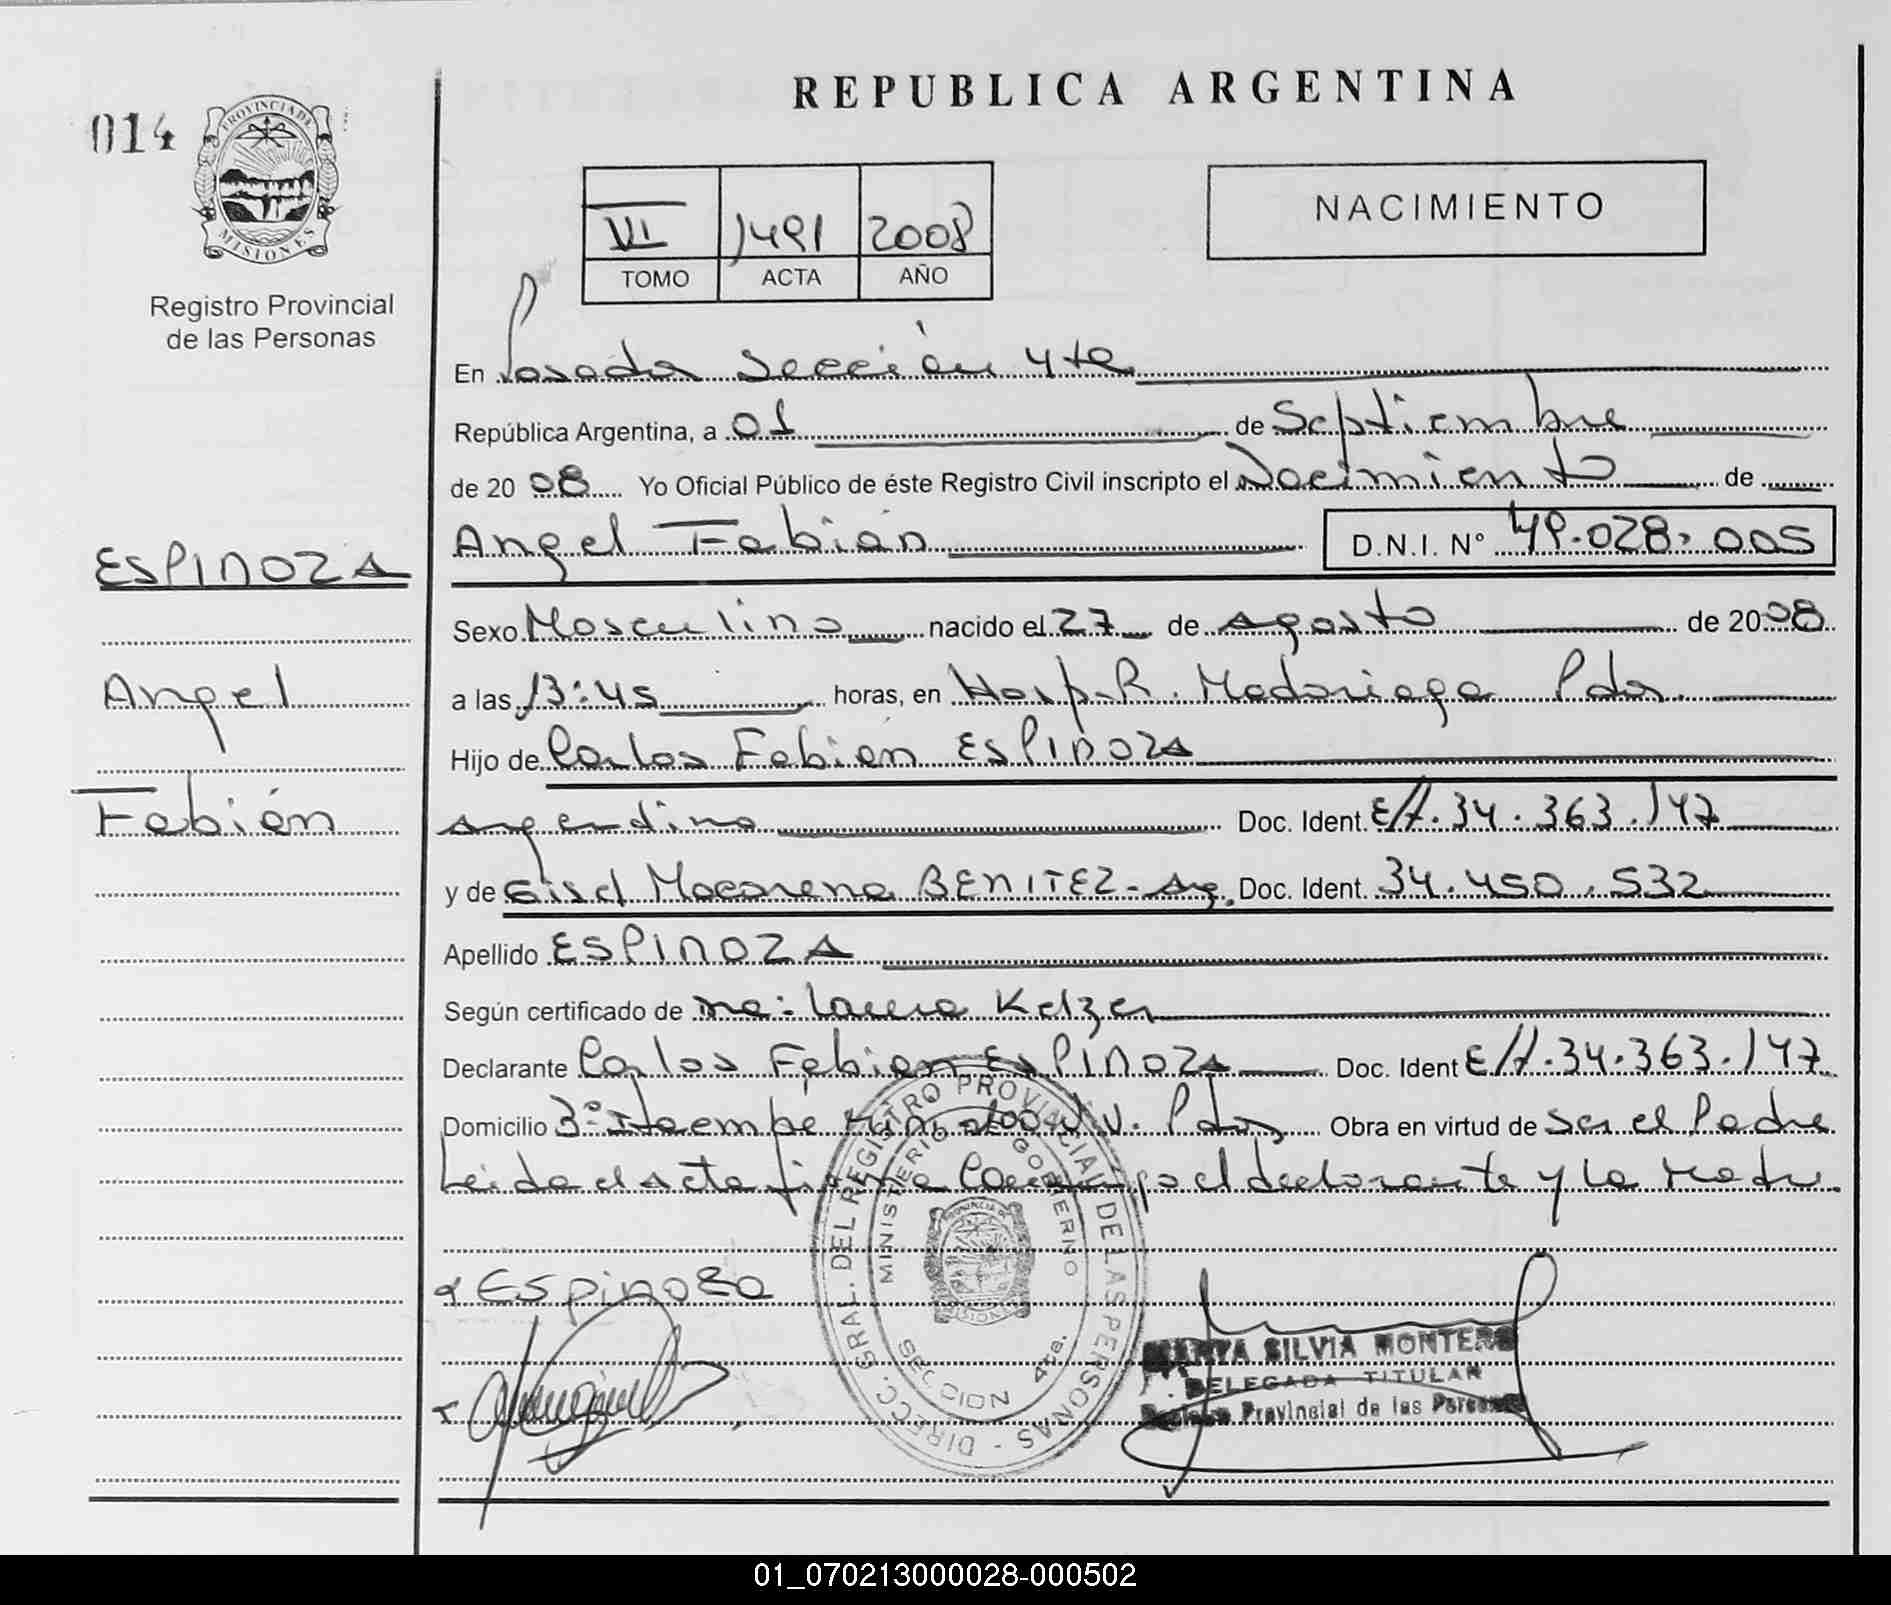 REPUBLICA ARGENTINA
014
PROVINCIA DE MISIONES
Registro Provincial
de las Personas
NACIMIENTO
VI 1491 2008
TOMO ACTA AÑO
En Posadas Sección 4ta
República Argentina, a 01 de Septiembre
de 2008 Yo Oficial Público de éste Registro Civil inscripto el Nacimiento de
Angel Fabián D.N.I. N° 49.028.005
ESPINOZA
Angel
Fabián
Sexo Masculino nacido el 27 de Agosto de 2008
a las 13:45 horas, en Hosp. R. Madariaga Pdas.
Hijo de Carlos Fabian ESPINOZA
Argentino Doc. Ident. 34.363.147
y de Gisel Macarena BENITEZ - Arg. Doc. Ident. 34.450.532
Apellido ESPINOZA
Según certificado de Laura Kelzer
Declarante Carlos Fabian ESPINOZA Doc. Ident 34.363.147
Domicilio Itaembe Mini Pdas Obra en virtud de ser el Padre
Leida el acta firma conmigo el declarante y la Madre.
Espinoza
DIRECC. GRAL. DEL REGISTRO PROVINCIAL DE LAS PERSONAS -
MINISTERIO DE GOBIERNO
PROVINCIA DE MISIONES
SECCION 4ta.
SILVIA MONTERO
DELEGADA TITULAR
Registro Provincial de las Personas
01_070213000028-000502